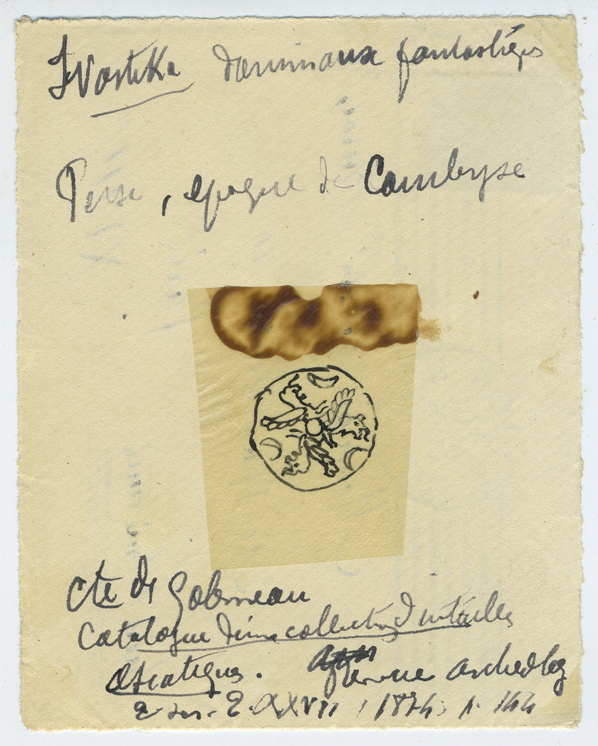 Svastika d'animaux fantastiques
Perse, époque de Cambyse
Cte de Gobineau
Catalogue d'une collection d'intailles
asiatiques. Revue archéolog
2e ser. t. XXVII, 1874, p. 144